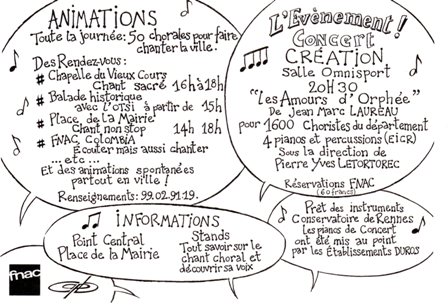 ANIMATIONS
Toute la journée: 50 chorales pour faire
chanter la ville!
Des Rendez-vous:
# Chapelle du Vieux Cours
Chant sacré 16h à 18h
# Balade historique
avec l'OTSI à partir de 15h
# Place de la Mairie
Chant non stop 14h 18h
# FNAC COLOMBIA
Écouter mais aussi chanter
... etc ...
Et des animations spontanées
partout en ville!
Renseignements: 99.02.91.19.
L'Evènement!
CONCERT
CRÉATION
Salle Omnisport
20H30
"Les Amours d'Orphée"
De Jean Marc LAUREAU
pour 1600 Choristes du département
4 pianos et percussions (EICR)
Sous la direction de
Pierre Yves LETORTOREC
Réservations FNAC
(60 francs)
INFORMATIONS
Point Central
Place de la Mairie
Stands
Tout savoir sur le
chant choral et
découvrir sa voix
Prêt des instruments
Conservatoire de Rennes
les pianos de Concert
ont été mis au point
par les Établissements DUROS
fnac